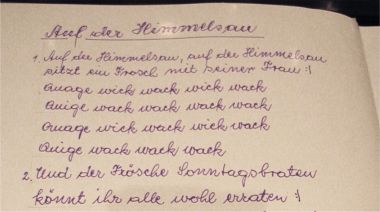 Auf der Himmelsau
1. Auf der Himmelsau, auf der Himmelsau
sitzt ein Frosch mit seiner Frau :|
Quage wick wack wick wack
Quige wack wack wack wack
Quage wick wack wick wack
Quige wack wack wack wack
2. Und der Frösche Sonntagsbraten
könnt ihr alle wohl erraten :|